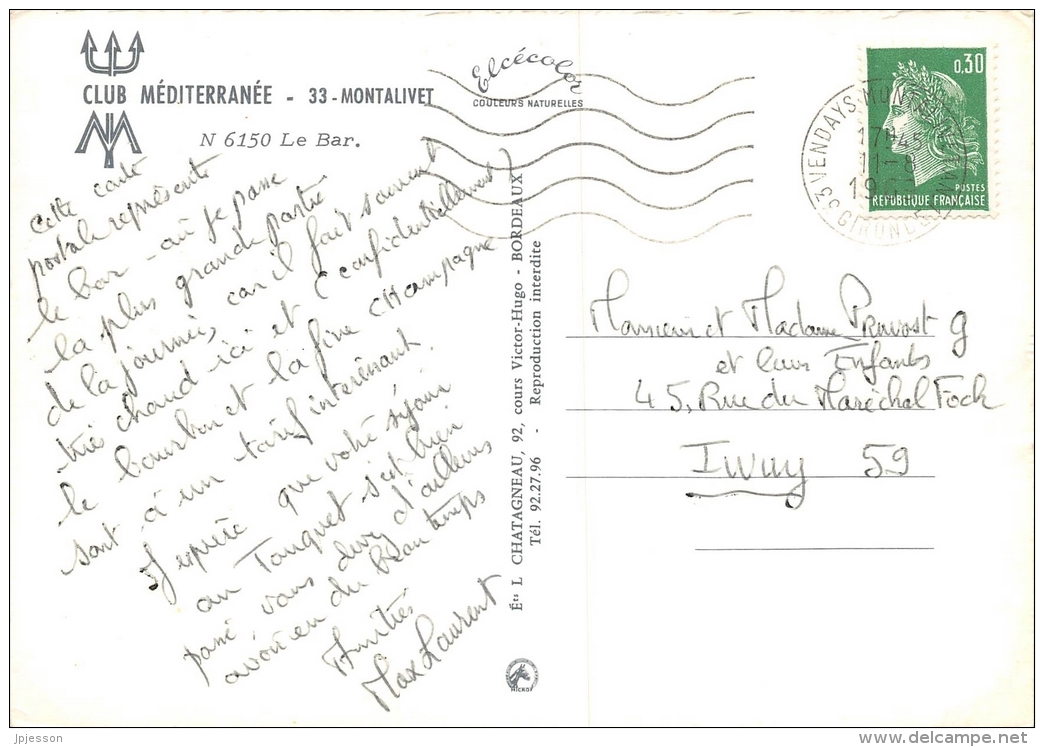 CLUB MÉDITERRANÉE - 33-MONTALIVET
N 6150 Le Bar.
Elcécolor
COULEURS NATURELLES
Cette carte
postale représente
le bar - où je passe
la plus grande partie
de la journée, car il fait souvent
très chaud ici et (confidentiellement)
le bourbon et la fine champagne
sont à un tarif intéressant.
J'espère que votre séjour
au Touquet s'est bien
passé vous devez d'ailleurs
avoir eu du beau temps
Amitiés
Max Laurent
Éts L CHATAGNEAU, 92, cours Victor-Hugo - BORDEAUX
Tél. 92.27.96 - Reproduction interdite
MICKOF
33 VENDAYS-MONTALIVET
17H45
11-8
19
GIRONDE
0,30
POSTES
RÉPUBLIQUE FRANÇAISE
Monsieur et Madame Pruvost g
et leurs Enfants
45, Rue du Maréchal Foch
Iwuy 59
jpjesson
www.delcampe.net